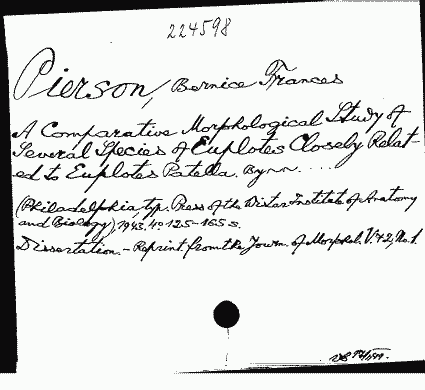 224598
Pierson, Bernice Frances
A Comparative Morphological Study of
Several Species of Euplotes Closely Relat-
ed to Euplotes Patella. Bynn....
(Philadelphia, typ. Press of the Wistar Institute of Anatomy
and Biology), 1943. 4o 125-165 s.
Dissertation. - Reprint from the Journ. of Morphol. V. 72, No. 1.